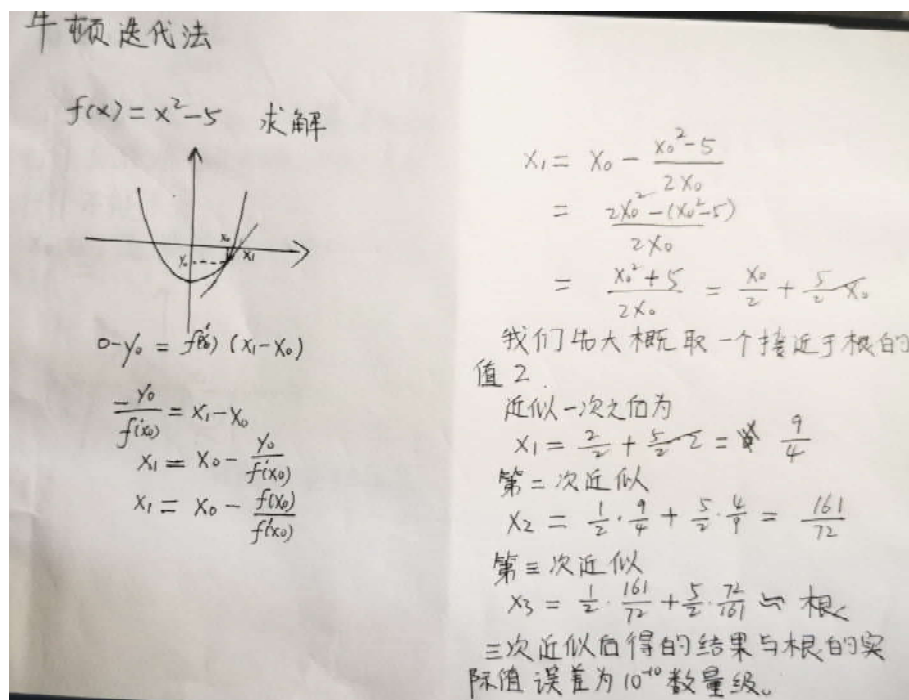 牛顿迭代法
f(x) = x²-5 求解
x₀
y₀
x₁
0-y₀ = f'(x₀) (x₁-x₀)
-y₀/f'(x₀) = x₁-x₀
x₁ = x₀ - y₀/f'(x₀)
x₁ = x₀ - f(x₀)/f'(x₀)
x₁ = x₀ - (x₀²-5)/(2x₀)
= (2x₀²-(x₀²-5))/(2x₀)
= (x₀²+5)/(2x₀) = x₀/2 + 5/(2x₀)
我们先大概取一个接近于根的
值2.
近似一次之后为
x₁ = 2/2 + 5/(2·2) = 9/4
第二次近似
x₂ = 1/2 · 9/4 + 5/2 · 4/9 = 161/72
第三次近似
x₃ = 1/2 · 161/72 + 5/2 · 72/161 ≈ 根
三次近似后得的结果与根的实
际值误差为10⁻¹⁰数量级。